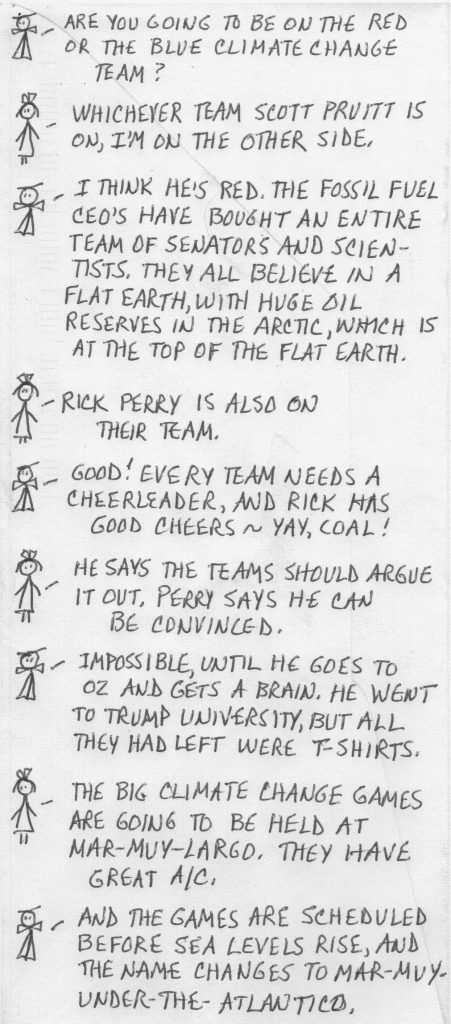 ARE YOU GOING TO BE ON THE RED
OR THE BLUE CLIMATE CHANGE
TEAM?
WHICHEVER TEAM SCOTT PRUITT IS
ON, I'M ON THE OTHER SIDE.
I THINK HE'S RED. THE FOSSIL FUEL
CEO'S HAVE BOUGHT AN ENTIRE
TEAM OF SENATORS AND SCIEN-
TISTS. THEY ALL BELIEVE IN A
FLAT EARTH, WITH HUGE OIL
RESERVES IN THE ARCTIC, WHICH IS
AT THE TOP OF THE FLAT EARTH.
RICK PERRY IS ALSO ON
THEIR TEAM.
GOOD! EVERY TEAM NEEDS A
CHEERLEADER, AND RICK HAS
GOOD CHEERS ~ YAY, COAL!
HE SAYS THE TEAMS SHOULD ARGUE
IT OUT. PERRY SAYS HE CAN
BE CONVINCED.
IMPOSSIBLE, UNTIL HE GOES TO
OZ AND GETS A BRAIN. HE WENT
TO TRUMP UNIVERSITY, BUT ALL
THEY HAD LEFT WERE T-SHIRTS.
THE BIG CLIMATE CHANGE GAMES
ARE GOING TO BE HELD AT
MAR-MUY-LARGO. THEY HAVE
GREAT A/C.
AND THE GAMES ARE SCHEDULED
BEFORE SEA LEVELS RISE, AND
THE NAME CHANGES TO MAR-MUY-
UNDER-THE-ATLANTICO.